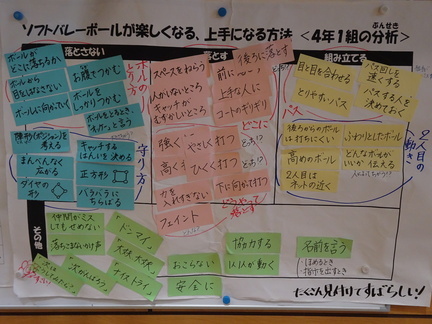 ソフトバレーボールが楽しくなる、上手になる方法 <4年1組の分析>
ぶんせき
落とさない
落とす
組み立てる
その他
ボールが
どこに落ちるか
ボールから
目をはなさない
ボールに向かっていく
お腹でつかむ
ボールを
しっかりつかむ
ボールのとり方
スペースをねらう
人がいないところ
キャッチが
むずかしいところ
後ろに落とす
前に
上手な人に
コートのギリギリ
どこに
目と目を合わせる
とりやすいパス
パス回しを
速くする
パスする人を
決めておく
パス
考える
まんべんなく
広がる
ダイヤの
形
キャッチする
はんいを決める
正方形
バラバラに
ちらばる
守り方
強く
やさしく打つ
高く
ひくく打つ
力を
入れすぎない
下に向かて打つ
フェイント
どうやって
落とす
後ろからのボール
は打ちにくい
高めのボール
2人目は
ネットの近く
ふわりとしたボール
どんなボールが
いいか伝える
2人目の
動き
仲間がミス
してもせめない
落ちこまないかけ声
「ドンマイ」
「大丈夫、大丈夫」
「ナイストライ」
おこらない
安全に
協力する
1人1人が動く
名前を言う
・ほめるとき
・指示を出すとき
たくさん見付けてすばらしい!